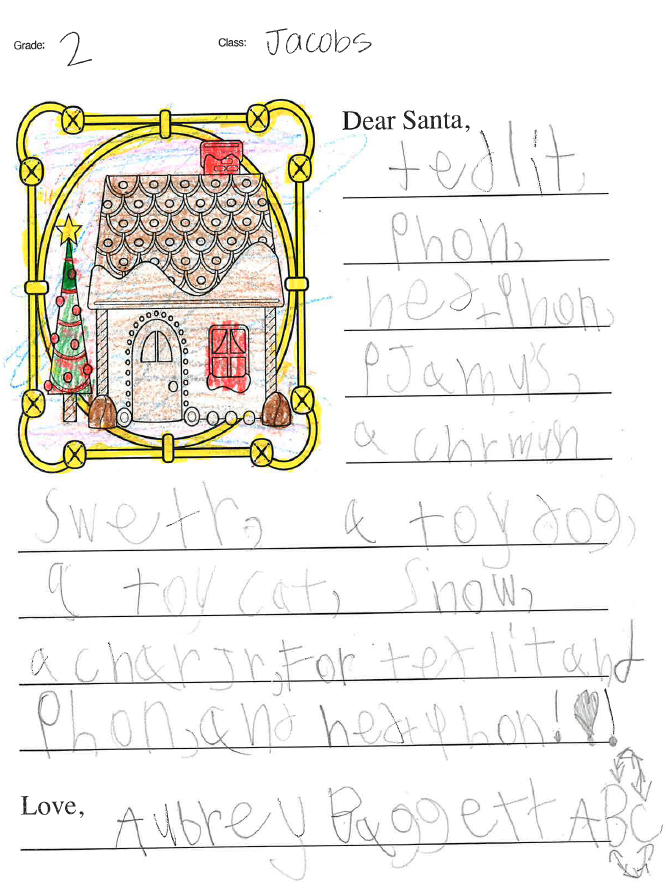 Grade: 2 Class: Jacobs
Dear Santa,
tedlit,
Phon,
hedphon,
PJamys,
a chrmysn
swetr, a toy dog,
a toy cat, snow,
a charjr, For tedlit and
Phon, and hedphon!!
Love, Aubrey Baggett ABC